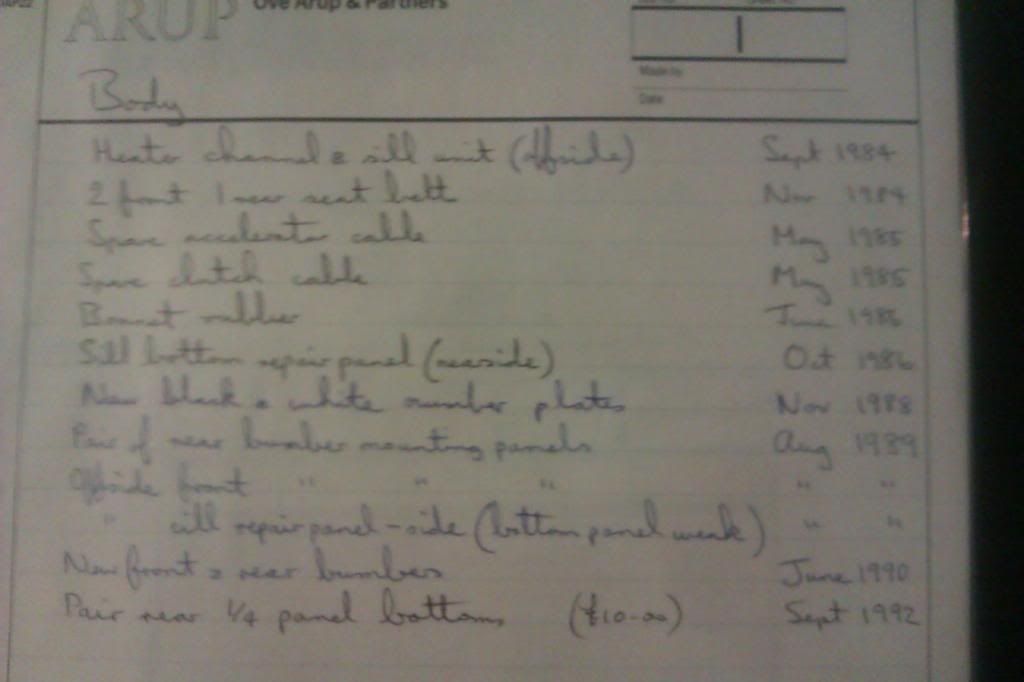 ARUP
Ove Arup & Partners
1
Made by
Date
Body
Heater channel & sill unit (offside) Sept 1984
2 front 1 rear seat belt Nov 1984
Spare accelerator cable May 1985
Spare clutch cable May 1985
Bonnet rubber June 1986
Sill bottom repair panel (nearside) Oct 1986
New black & white number plates Nov 1988
Pair of rear bumber mounting panels Aug 1989
Offside front " " " " "
" sill repair panel - side (bottom panel weak) " "
New front & rear bumbers June 1990
Pair rear 1/4 panel bottoms (£10-00) Sept 1992